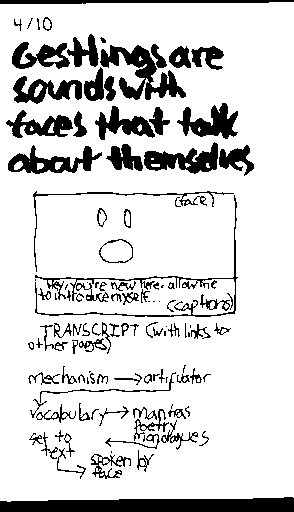 4/10
Gestlings are
sounds with
faces that talk
about themselves
(face)
Hey, you're new here. allow me
to introduce myself...
(captions)
TRANSCRIPT (with links to
other pages)
mechanism → articulator
vocabulary → mantras
poetry
monologues
set to
text
spoken by
face